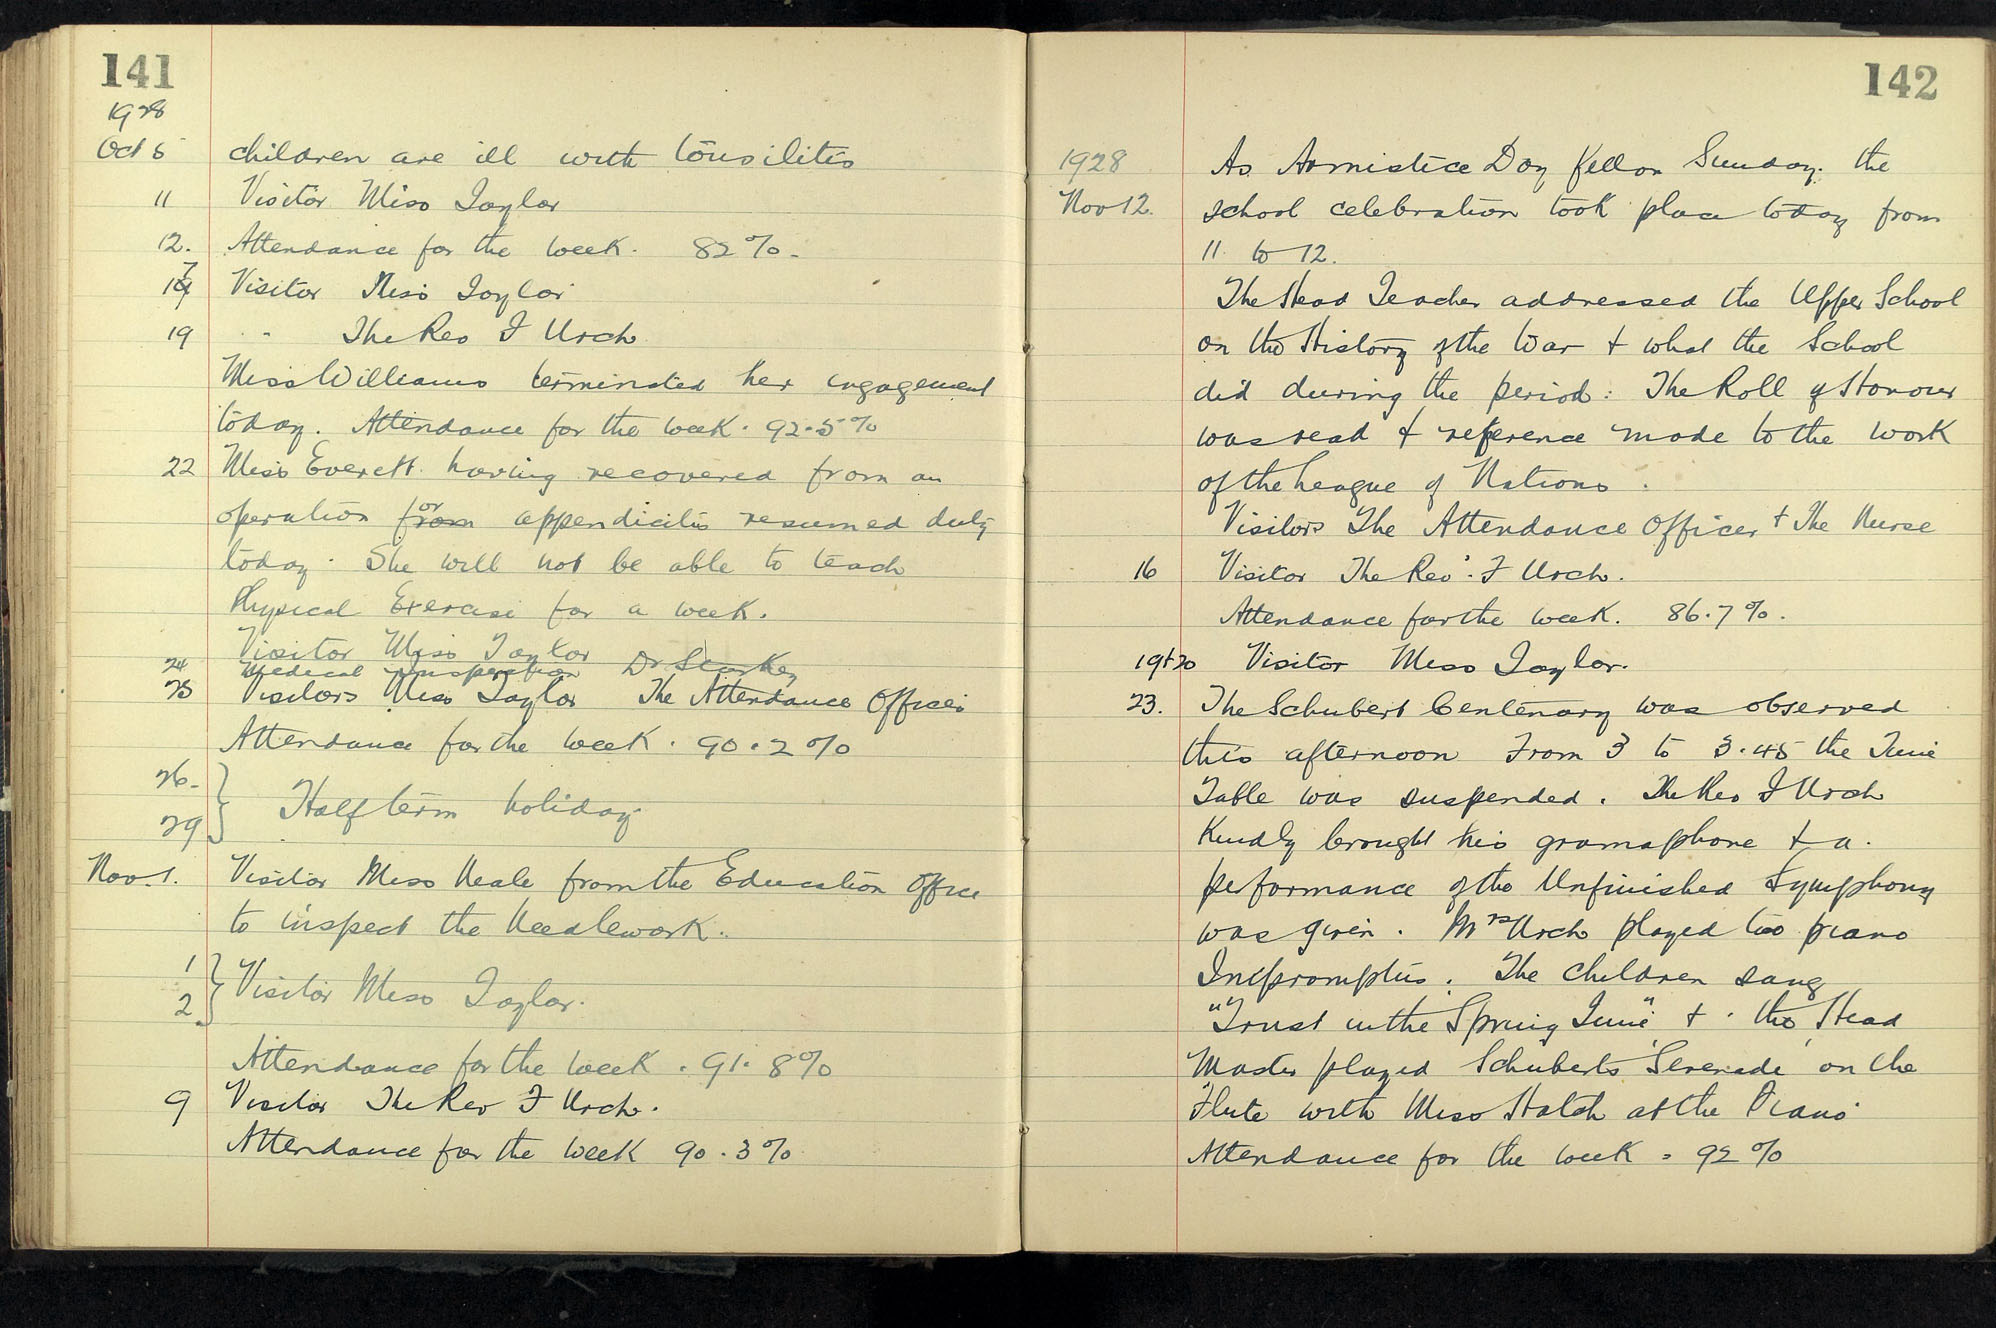 141
1928
Oct 5 children are ill with tonsilitis
11 Visitor Miss Taylor
12. Attendance for the week. 82%.
17 Visitor Miss Taylor
19 " The Rev F Urch
Miss Williams terminated her engagement
today. Attendance for the week. 92.5%
22 Miss Everett having recovered from an
operation for appendicitis resumed duty
today. She will not be able to teach
Physical Exercise for a week.
Visitor Miss Taylor
24 Medical Inspection Dr
25 Visitors Miss Taylor The Attendance Officer
Attendance for the week. 90.2%
26-
29 } Half term holiday
Nov. 1. Visitor Miss Neale from the Education Office
to inspect the Needlework.
1
2 } Visitor Miss Taylor.
Attendance for the week. 91.8%
9 Visitor The Rev F Urch.
Attendance for the week 90.3%
142
1928 As Armistice Day fell on Sunday. the
Nov 12. school celebration took place today from
11 to 12.
The Head Teacher addressed the Upper School
on the History of the War & what the School
did during the period: The Roll of Honour
was read & reference made to the work
of the League of Nations.
Visitors The Attendance Officer & The Nurse
16 Visitor The Rev. F Urch.
Attendance for the week. 86.7%.
19+20 Visitor Miss Taylor.
23. The Schubert Centenary was observed
this afternoon From 3 to 3.45 the Time
Table was suspended. The Rev F Urch
Kindly brought his gramaphone & a.
performance of the Unfinished Symphony
was given. Mrs Urch played two piano
Impromptus. The children sang
"Trust in the Spring Time" & the Head
Master played Schuberts 'Serenade' on the
Flute with Miss Hatch at the Piano
Attendance for the week = 92%